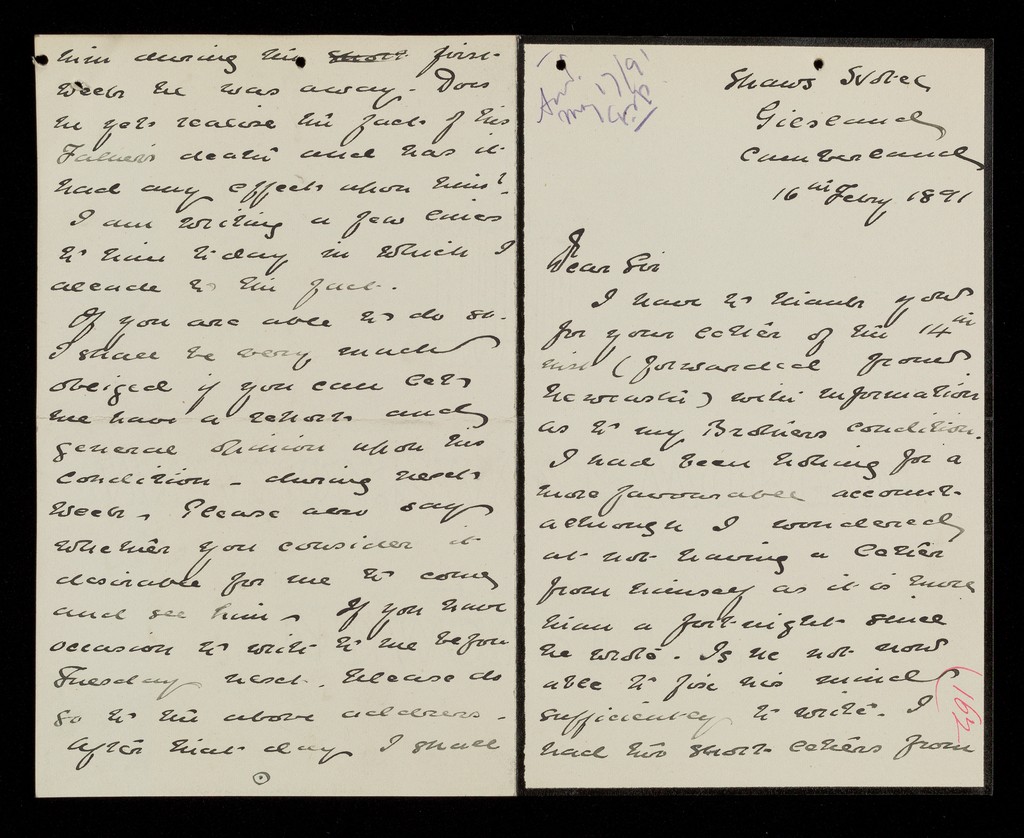 Shaws Hotel
Gilsland
Cumberland
16th Febry 1891
Dear Sir
I have to thank you
for your letter of the 14th
inst (forwarded from
Newcastle) with information
as to my Brothers condition.
I had been hoping for a
more favourable account
although I wondered
at not having a letter
from himself as it is more
than a fortnight since
he wrote. Is he not now
able to fix his mind
sufficiently to write. I
had two short letters from
163
17/91
him during his short first
week he was away. Does
he yet realise the fact of his
Father's death and has it
had any effect upon him?
I am writing a few lines
to him today in which I
allude to the fact.
If you are able to do so.
I shall be very much
obliged if you can let
me have a report and
general opinion upon his
condition - during next
week. Please also say
whether you consider it
desirable for me to come
and see him. If you have
occasion to write to me before
Tuesday next. Please do
so to the above address.
After that day I shall